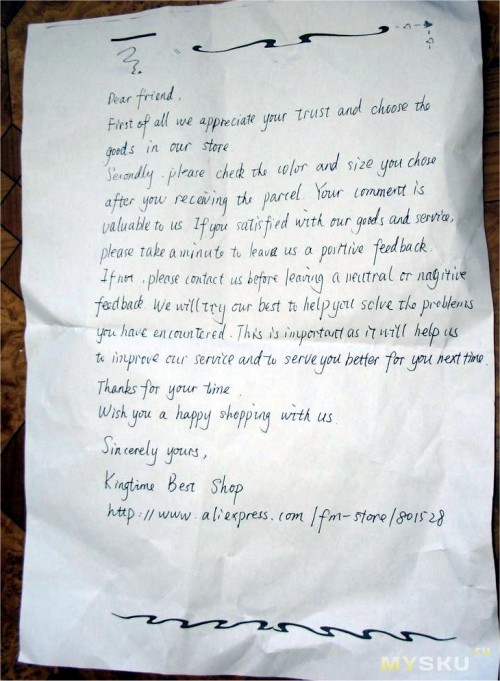 Dear friend.
First of all we appreciate your trust and choose the
goods in our store.
Secondly. please check the color and size you chose
after you receiving the parcel. Your comment is
valuable to us. If you satisfied with our goods and service,
please take a minute to leave us a positive feedback.
If not, please contact us before leaving a neutral or nagitive
feedback. We will try our best to help you solve the problems
you have encountered. This is important as it will help us
to improve our service and to serve you better for you next time.
Thanks for your time.
Wish you a happy shopping with us.
Sincerely yours,
Kingtime Best Shop
http://www.aliexpress.com/fm-store/801528
MYSKU.ru